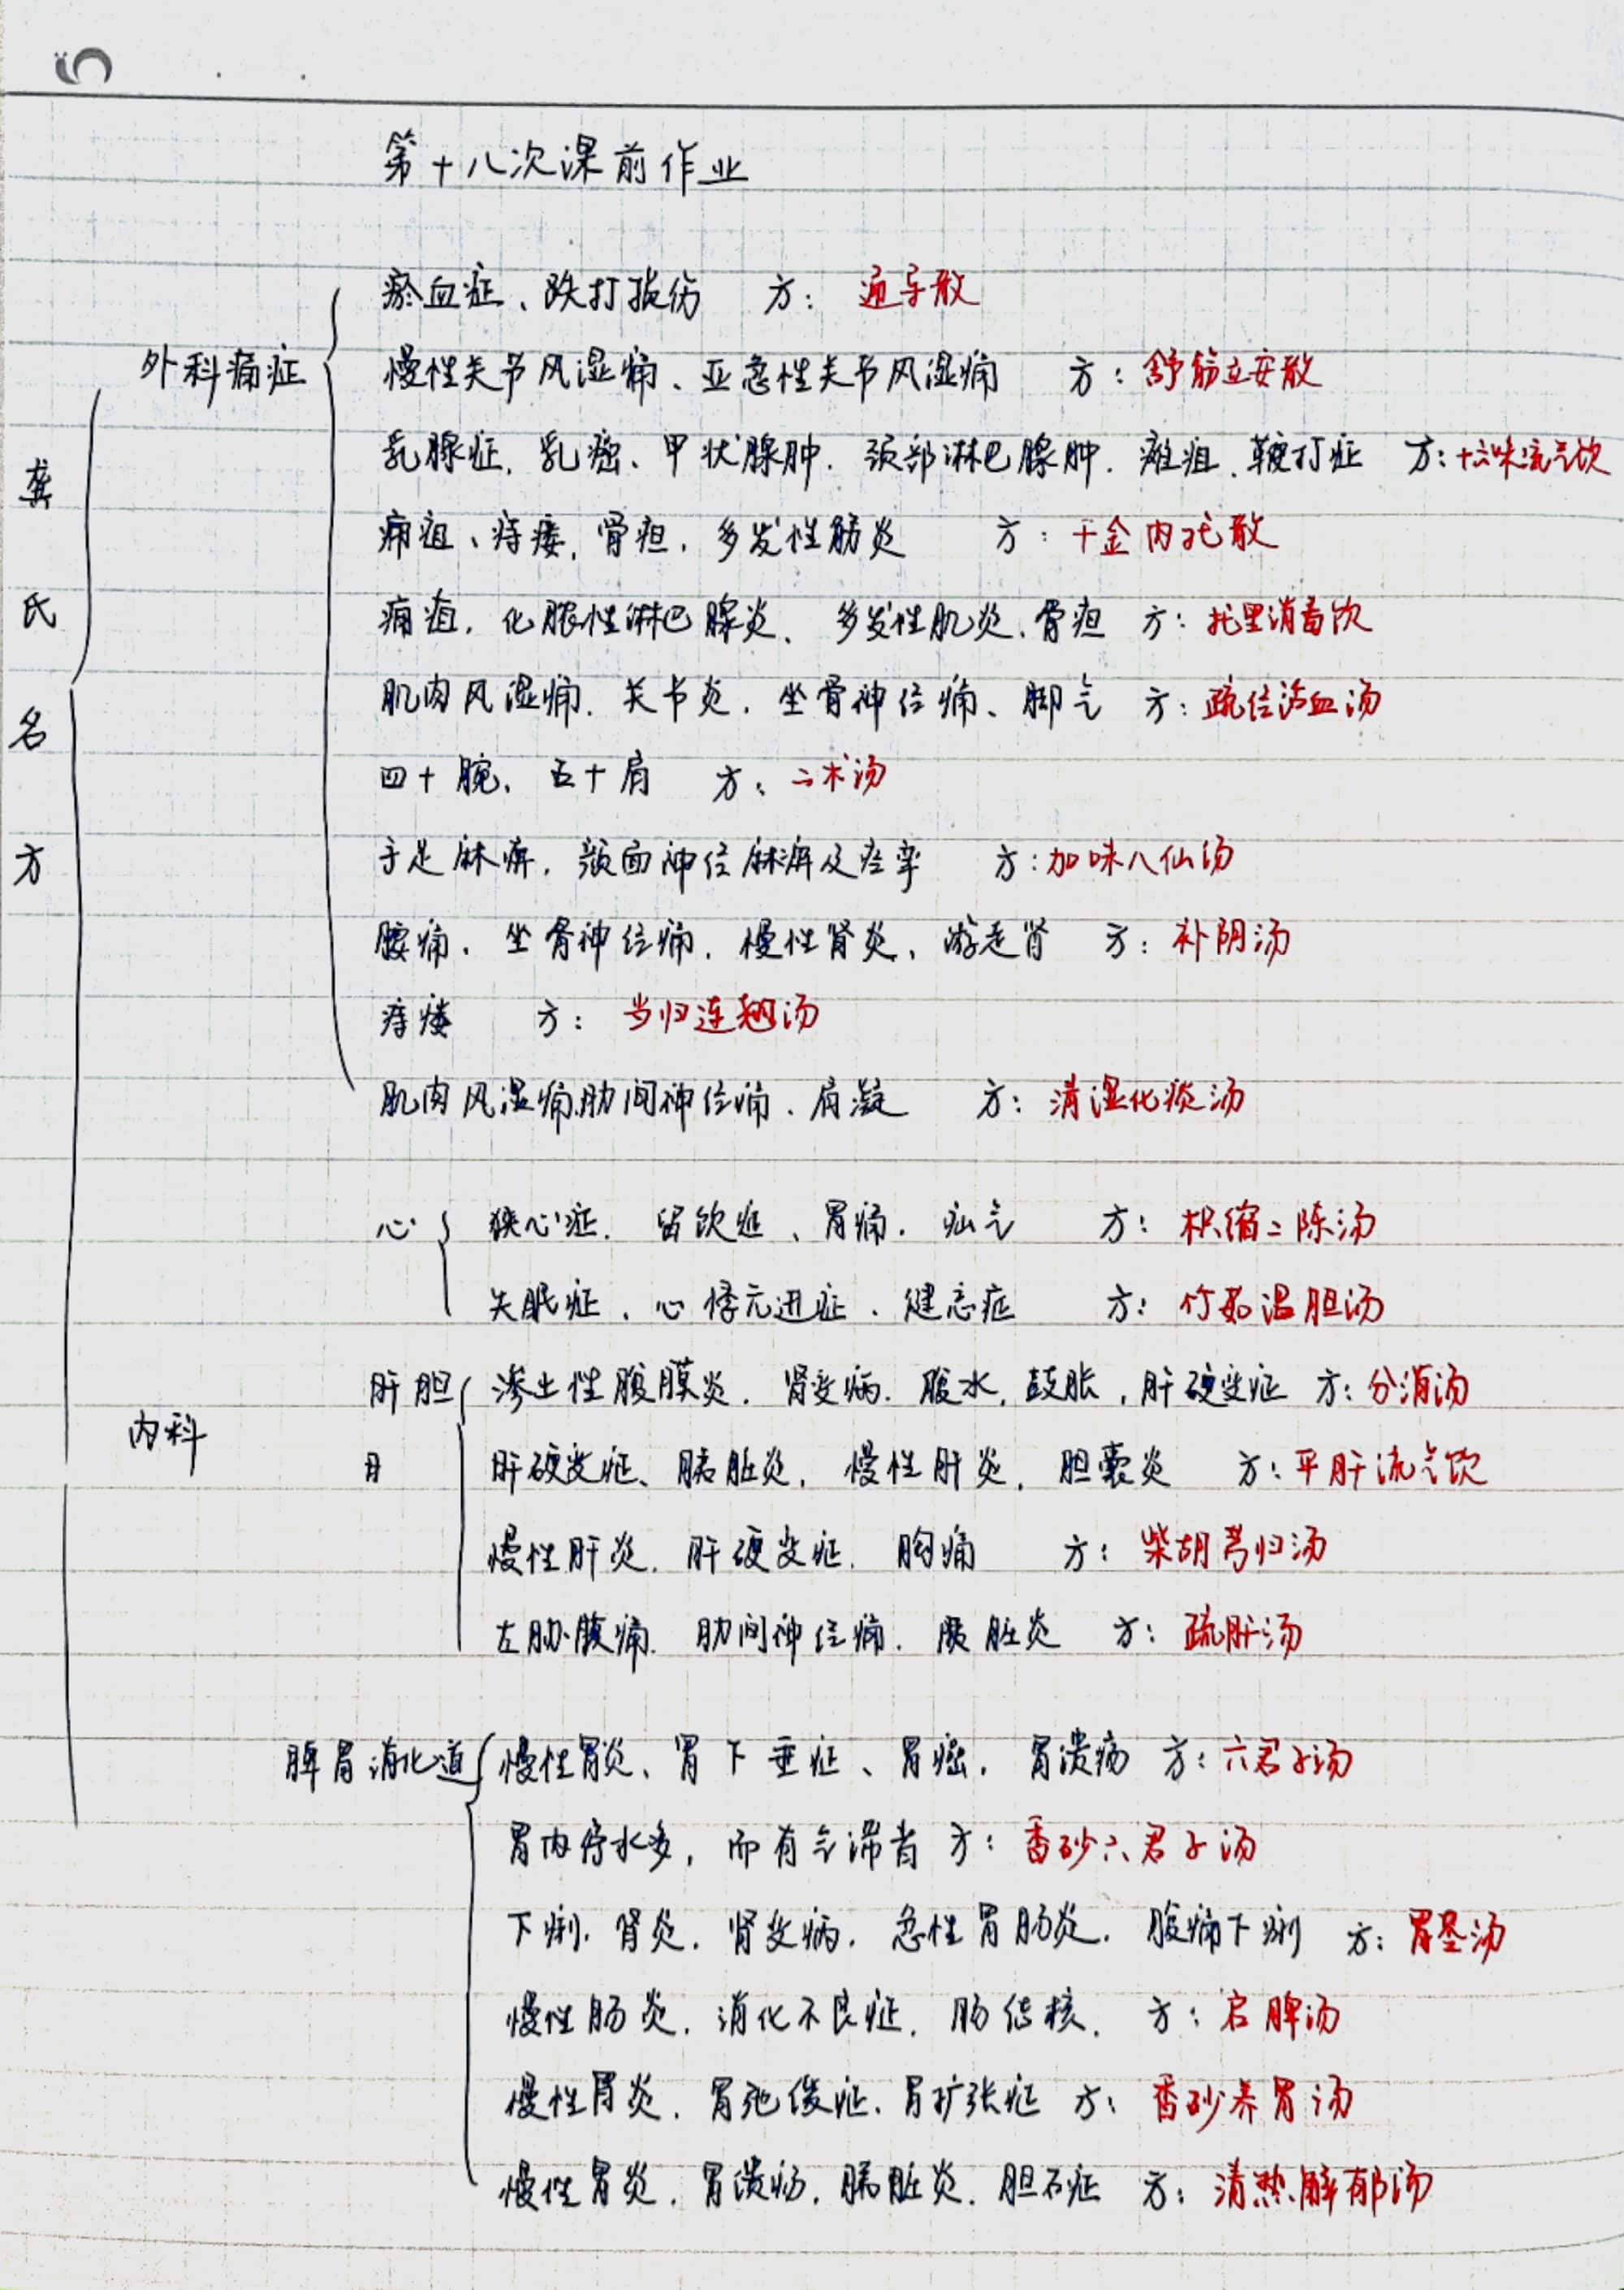 第十八次课前作业
龚氏名方
外科痛症
瘀血症、跌打损伤 方：通导散
慢性关节风湿痛、亚急性关节风湿痛 方：舒筋立安散
乳腺症，乳癌、甲状腺肿．颈部淋巴腺肿．瘫疽．鞭打症 方：十六味流气饮
痈疽、痔瘘，骨疽，多发性筋炎 方：千金内托散
痈疽，化脓性淋巴腺炎、多发性肌炎、骨疽 方：托里消毒饮
肌肉风湿痛．关节炎．坐骨神经痛、脚气 方：疏经活血汤
四十腕、五十肩 方：二术汤
手足麻痹，颜面神经麻痹及痉挛 方：加味八仙汤
腰痛．坐骨神经痛．慢性肾炎，游走肾 方：补阴汤
痔瘘 方：当归连翘汤
肌肉风湿痛．肋间神经痛．肩凝 方：清湿化痰汤
内科
心
狭心症．留饮症、胃痛．疝气 方：枳缩二陈汤
失眠症．心悸亢进症．健忘症 方：竹茹温胆汤
肝胆月
渗出性腹膜炎．肾变病．腹水，鼓胀，肝硬变症 方：分消汤
肝硬变症、胰脏炎，慢性肝炎，胆囊炎 方：平肝流气饮
慢性肝炎．肝硬变症．胸痛 方：柴胡芎归汤
左胁腹痛．肋间神经痛．胰脏炎 方：疏肝汤
脾胃消化道
慢性胃炎、胃下垂症、胃癌．胃溃疡 方：六君子汤
胃内停水多，而有气滞者 方：香砂六君子汤
下痢．肾炎．肾变病．急性胃肠炎．腹痛下痢 方：胃苓汤
慢性肠炎．消化不良症．肠结核． 方：启脾汤
慢性胃炎．胃弛缓症．胃扩张症 方：香砂养胃汤
慢性胃炎．胃溃疡．胰脏炎．胆石症 方：清热解郁汤